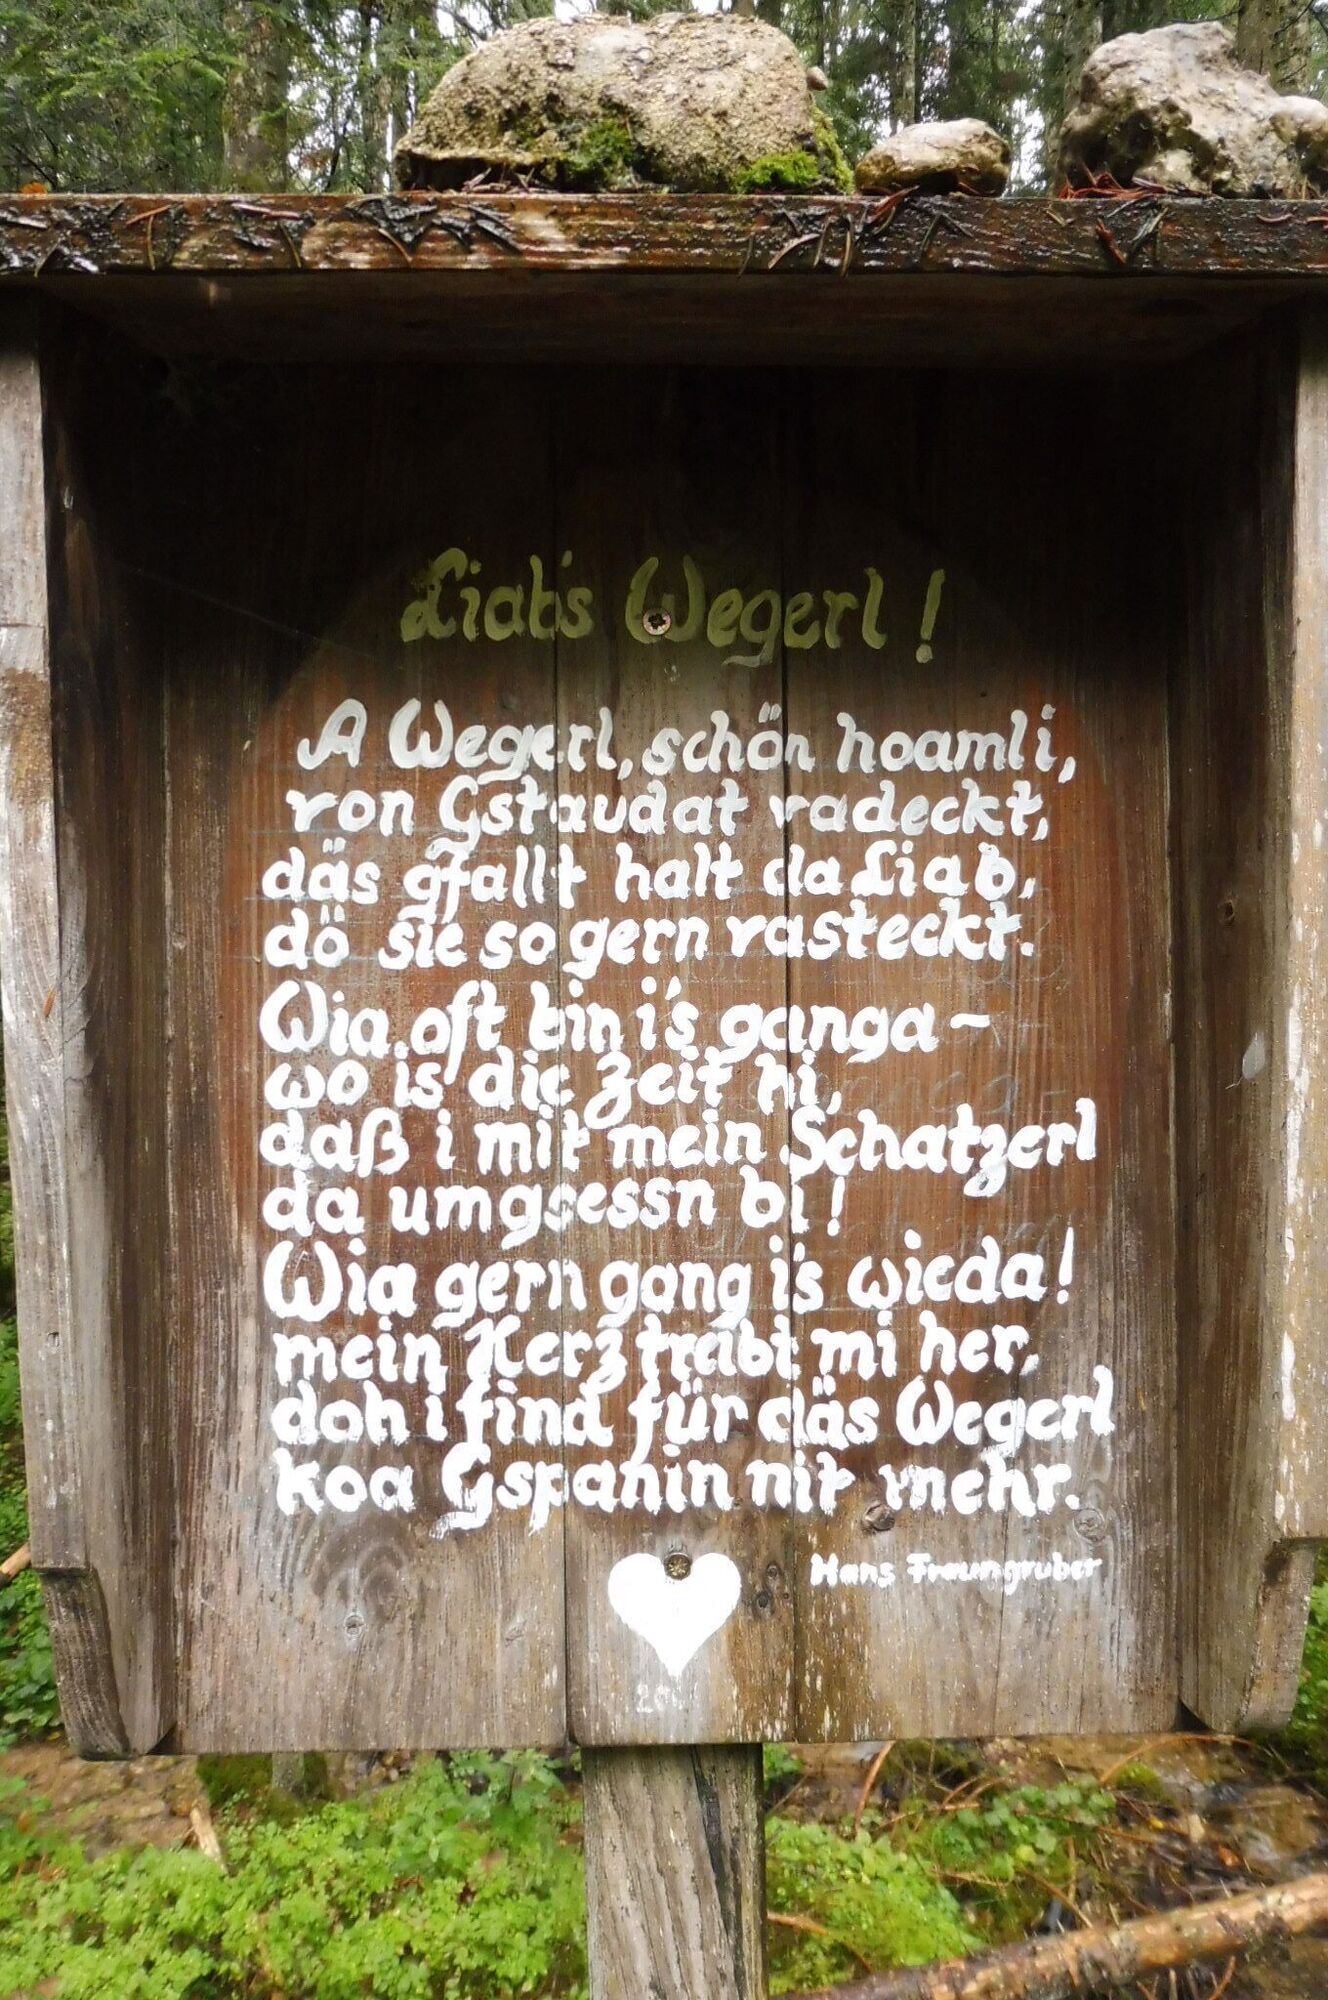 Liab's Wegerl!
A Wegerl, schön hoamli,
von Gstaudat vadeckt,
däs gfallt halt da Liab,
dö sie so gern vasteckt.
Wia oft bin i's ganga -
wo is die Zeit hi,
daß i mit mein Schatzerl
da umgsessn bi!
Wia gern gang i's wieda!
mein Herz treibt mi her,
doh i find für däs Wegerl
koa Gspanin nit mehr.
Hans Fraungruber